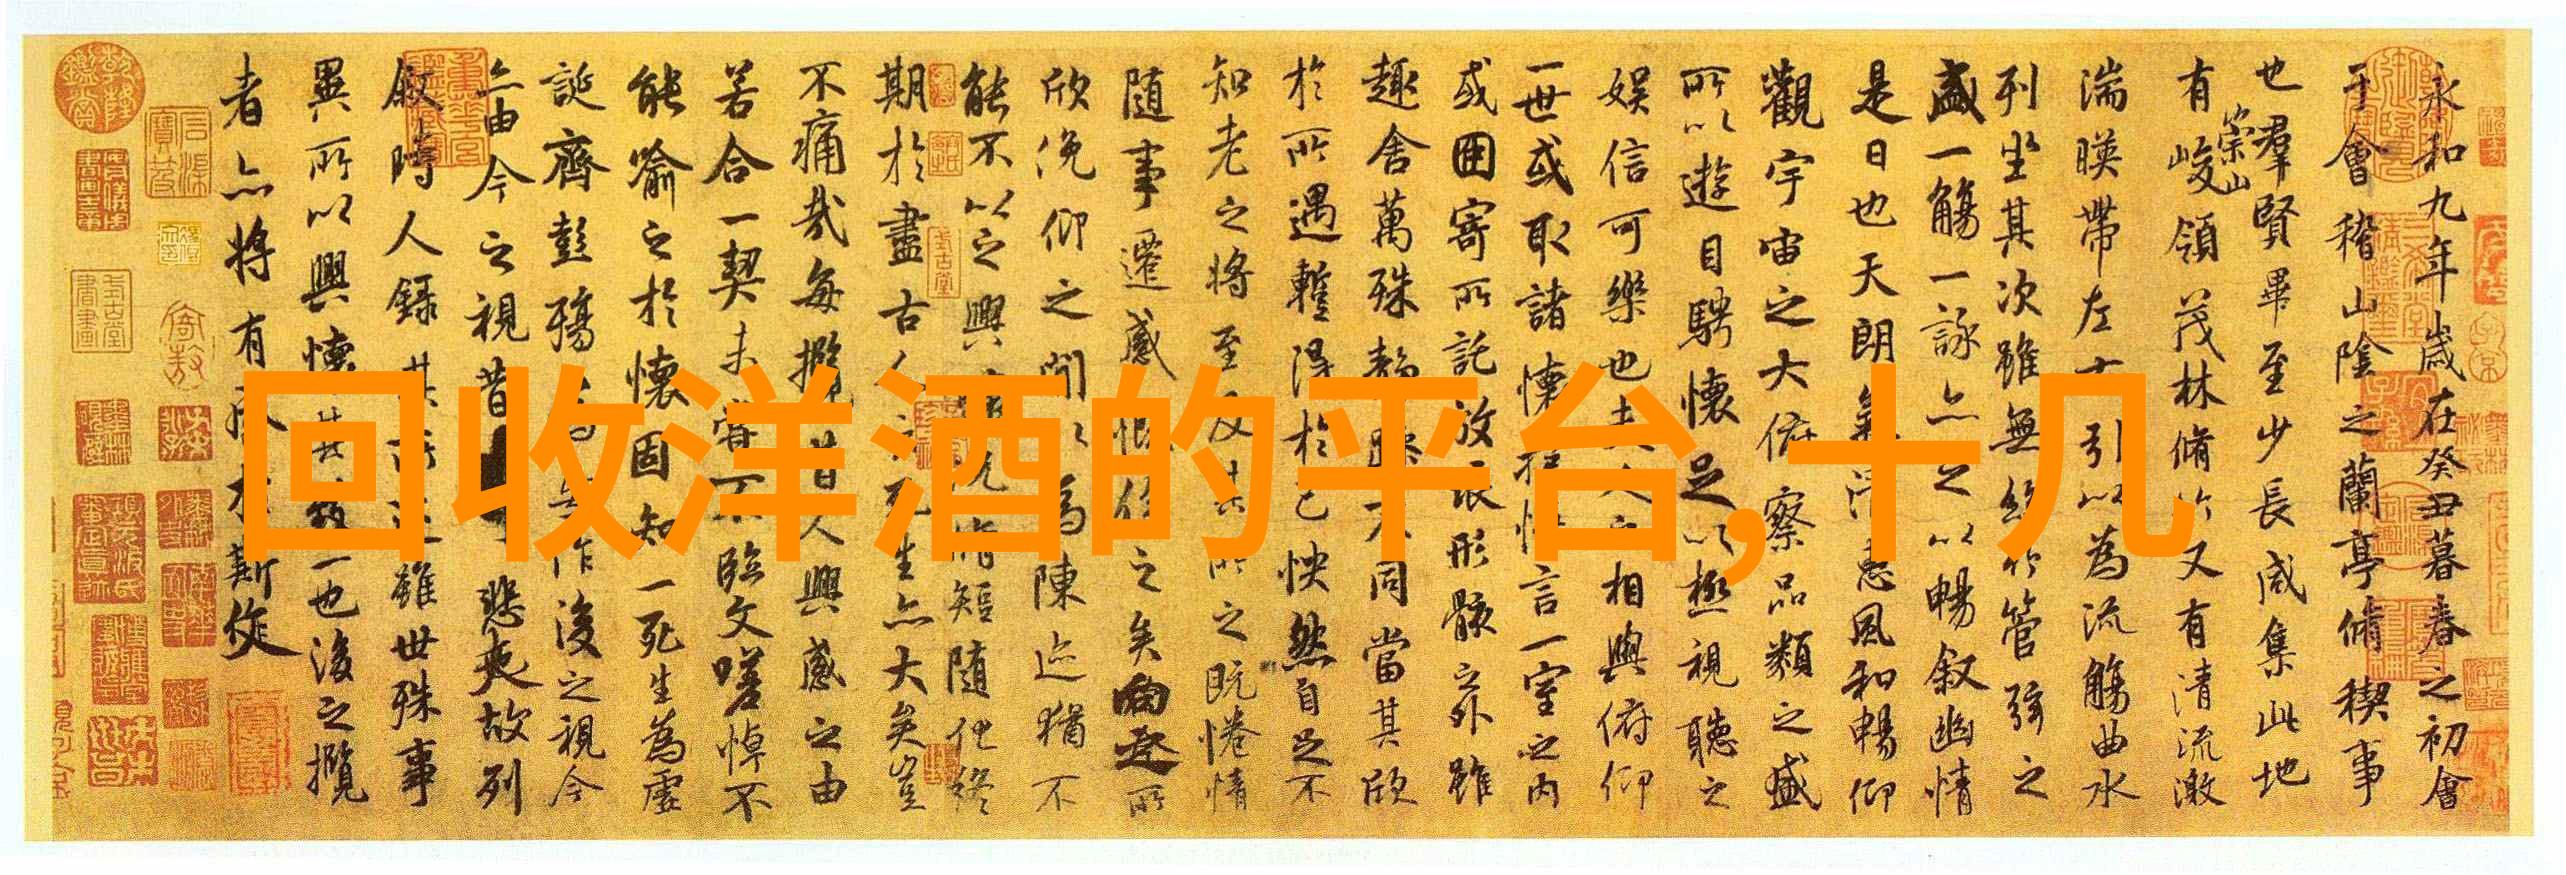 回收洋酒的平台,十几
永和九年歲在癸丑暮春之初會
于會稽山陰之蘭亭脩稧事
也羣賢畢至少長咸集此地
有崇山峻領茂林脩竹又有清流激
湍暎帶左右引以為流觴曲水
列坐其次雖無絲竹管弦之
盛一觴一詠亦足以暢敘幽情
是日也天朗氣清惠風和暢仰
觀宇宙之大俯察品類之盛
所以遊目騁懷足以極視聽之
娛信可樂也夫人之相與俯仰
一世或取諸懷抱悟言一室之內
或因寄所託放浪形骸之外雖
趣舍萬殊靜躁不同當其欣
於所遇蹔得於己怏然自足不
知老之將至及其所之既惓情
隨事遷感慨係之矣向之所
欣俛仰之閒以為陳迹猶不
能不以之興懷況脩短隨化終
期於盡古人云死生亦大矣豈
不痛哉每攬昔人興感之由
若合一契未嘗不臨文嗟悼不
能喻之於懷固知一死生為虛
誕齊彭殤為妄作後之視今
亦由今之視昔悲夫故列
敘時人錄其所述雖世殊事
異所以興懷其致一也後之攬
者亦將有感於斯文